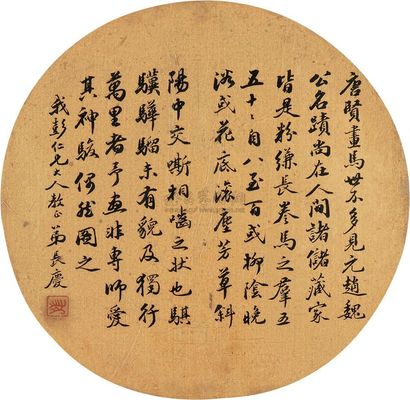 唐賢畫馬世不多見元趙魏
公名蹟尚在人間諸儲藏家
皆是粉縑長卷馬之羣五
五十十自八至百或柳陰晚
浴或花底滚塵芳草斜
陽中交嘶相嚙之狀也騏
驥驊騮未有貌及獨行
萬里者予畫非專師愛
其神駿偶然圖之
我彭仁兄大人教正弟長慶